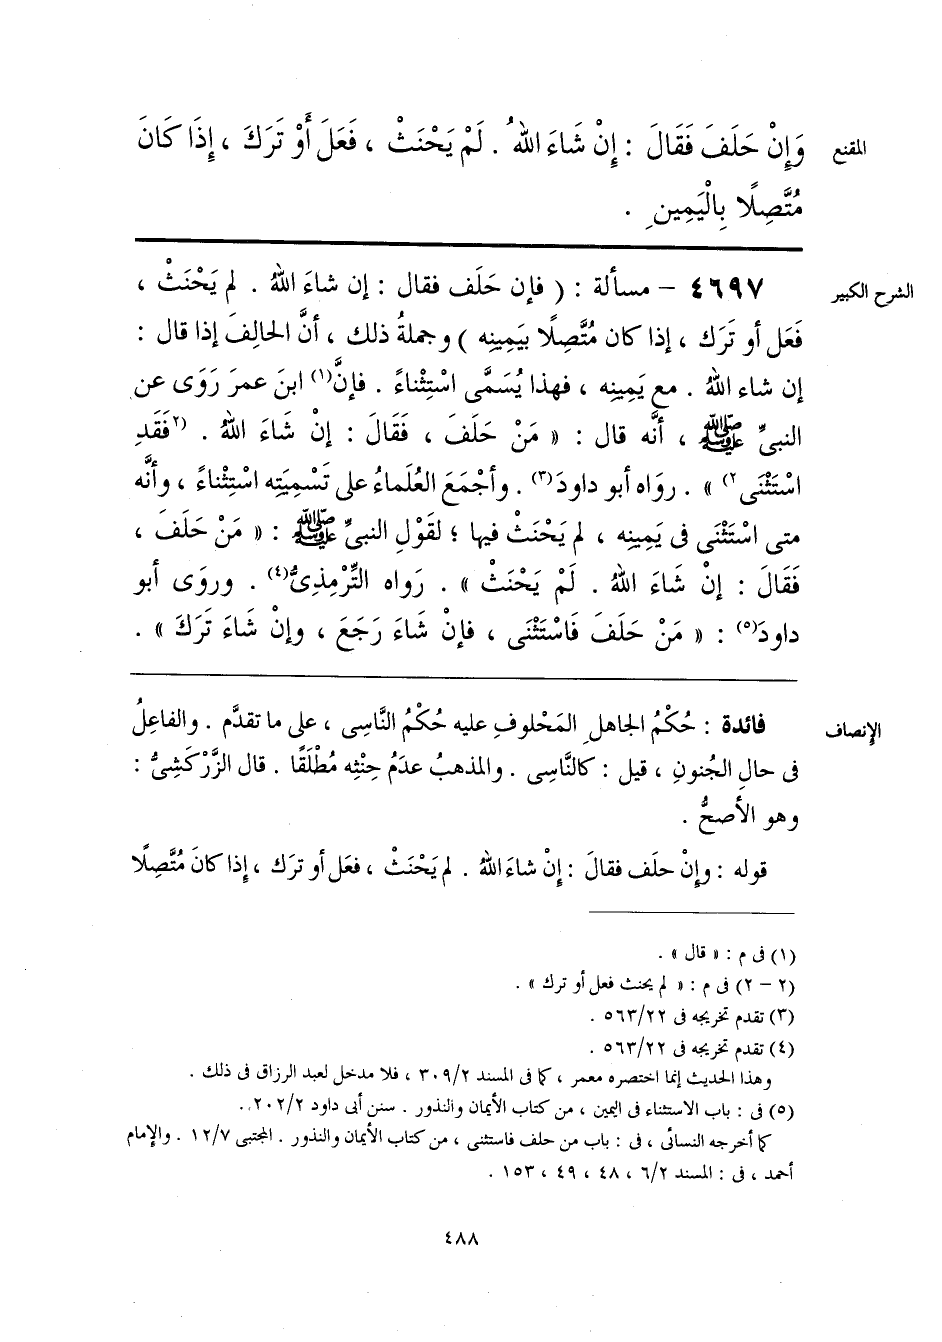 المقنع
وَإِنْ حَلَفَ فَقَالَ : إِنْ شَاءَ اللهُ . لَمْ يَحْنَثْ ، فَعَلَ أَوْ تَرَكَ ، إِذَا كَانَ
مُتَّصِلًا بِالْيَمِينِ .
الشرح الكبير
٤٦٩٧ – مسألة : ( فإن حَلَف فقال : إن شاءَ اللهُ . لم يَحْنَثْ ،
فَعَل أو تَرَك ، إذا كان مُتَّصِلًا بيَمِينِه ) وجملةُ ذلك ، أنَّ الحالِفَ إذا قال :
إن شاء اللهُ . مع يَمِينِه ، فهذا يُسَمَّى اسْتِثْناءً . فإنَّ(١) ابنَ عمرَ رَوَى عن
النبىِّ ﷺ ، أنَّه قال : « مَنْ حَلَفَ ، فَقَالَ : إنْ شَاءَ اللهُ . (٢فَقَدِ
اسْتَثْنَى٢) » . روَاه أبو داودَ(٣) . وأجْمَعَ العُلَماءُ على تَسْمِيَتِه اسْتِثْناءً ، وأنَّه
متى اسْتَثْنَى فى يَمِينِه ، لم يَحْنَثْ فيها ؛ لقَوْلِ النبىِّ ﷺ : « مَنْ حَلَفَ ،
فَقَالَ : إنْ شَاءَ اللهُ . لَمْ يَحْنَثْ » . رَواه التِّرْمِذِىُّ(٤) . وروَى أبو
داودَ(٥) : « مَنْ حَلَفَ فَاسْتَثْنَى ، فإنْ شَاءَ رَجَعَ ، وإنْ شَاءَ تَرَكَ » .
الإنصاف
فائدة : حُكْمُ الجاهلِ المَحْلوفِ عليه حُكْمُ النَّاسِى ، على ما تقدَّم . والفاعِلُ
فى حالِ الجُنونِ ، قيل : كالنَّاسِى . والمذهبُ عدَمُ حِنْثِه مُطْلَقًا . قال الزَّرْكَشِىُّ :
وهو الأصحُّ .
قوله : وإنْ حلَف فقالَ : إنْ شاءَ اللهُ . لم يَحْنَثْ ، فعَل أو ترَك ، إذا كانَ مُتَّصِلًا
(١) فى م : « قال » .
(٢ – ٢) فى م : « لم يحنث فعل أو ترك » .
(٣) تقدم تخريجه فى ٥٦٣/٢٢ .
(٤) تقدم تخريجه فى ٥٦٣/٢٢ .
وهذا الحديث إنما اختصره معمر ، كما فى المسند ٣٠٩/٢ ، فلا مدخل لعبد الرزاق فى ذلك .
(٥) فى : باب الاستثناء فى اليمين ، من كتاب الأيمان والنذور . سنن أبى داود ٢٠٢/٢ .
كما أخرجه النسائى ، فى : باب من حلف فاستثنى ، من كتاب الأيمان والنذور . المجتبى ١٢/٧ . والإمام
أحمد ، فى : المسند ٦/٢ ، ٤٨ ، ٤٩ ، ١٥٣ .
٤٨٨